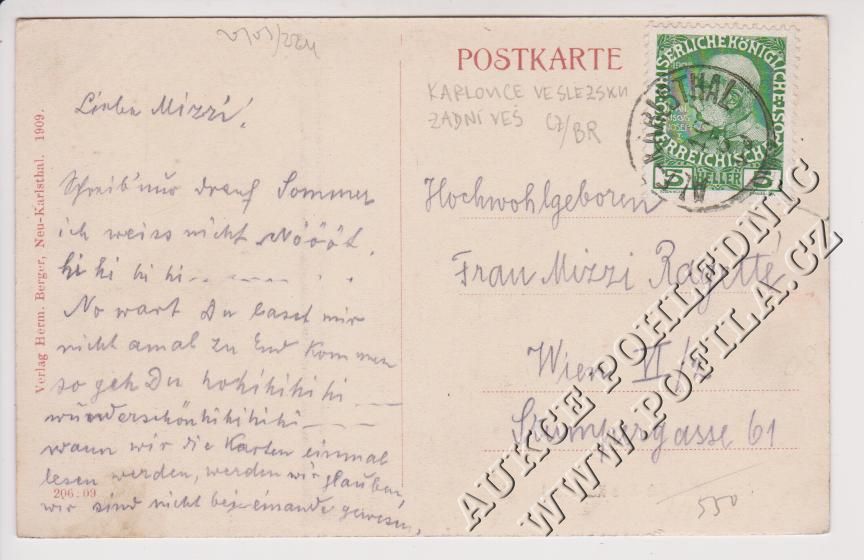 POSTKARTE
KARLOVICE VE SLEZSKU
ZADNÍ VES CZ/BR
Verlag Herm. Berger, Neu-Karlsthal. 1909.
206:09
Liebe Mizzi!
Schreib' nur drauf Sommer
ich weiss nicht Nöööt.
hi hi hi hi
No wart Du lasst mir
nicht amal zu End kommen
so geh Du hohihihihi
wunderschönhihihihihi
wann wir die Karten einmal
lesen werden, werden wir glauben,
wir sind nicht beieinander gewesen.
Hochwohlgeboren
Frau Mizzi Ragetté
Wien VI/
Stumpergasse 61
550
KAISERLICHE KÖNIGLICHE
ÖSTERREICHISCHE
5 HELLER 5
KARLSTHAL
AUKCE POHLEDNIC
WWW.POFILA.CZ